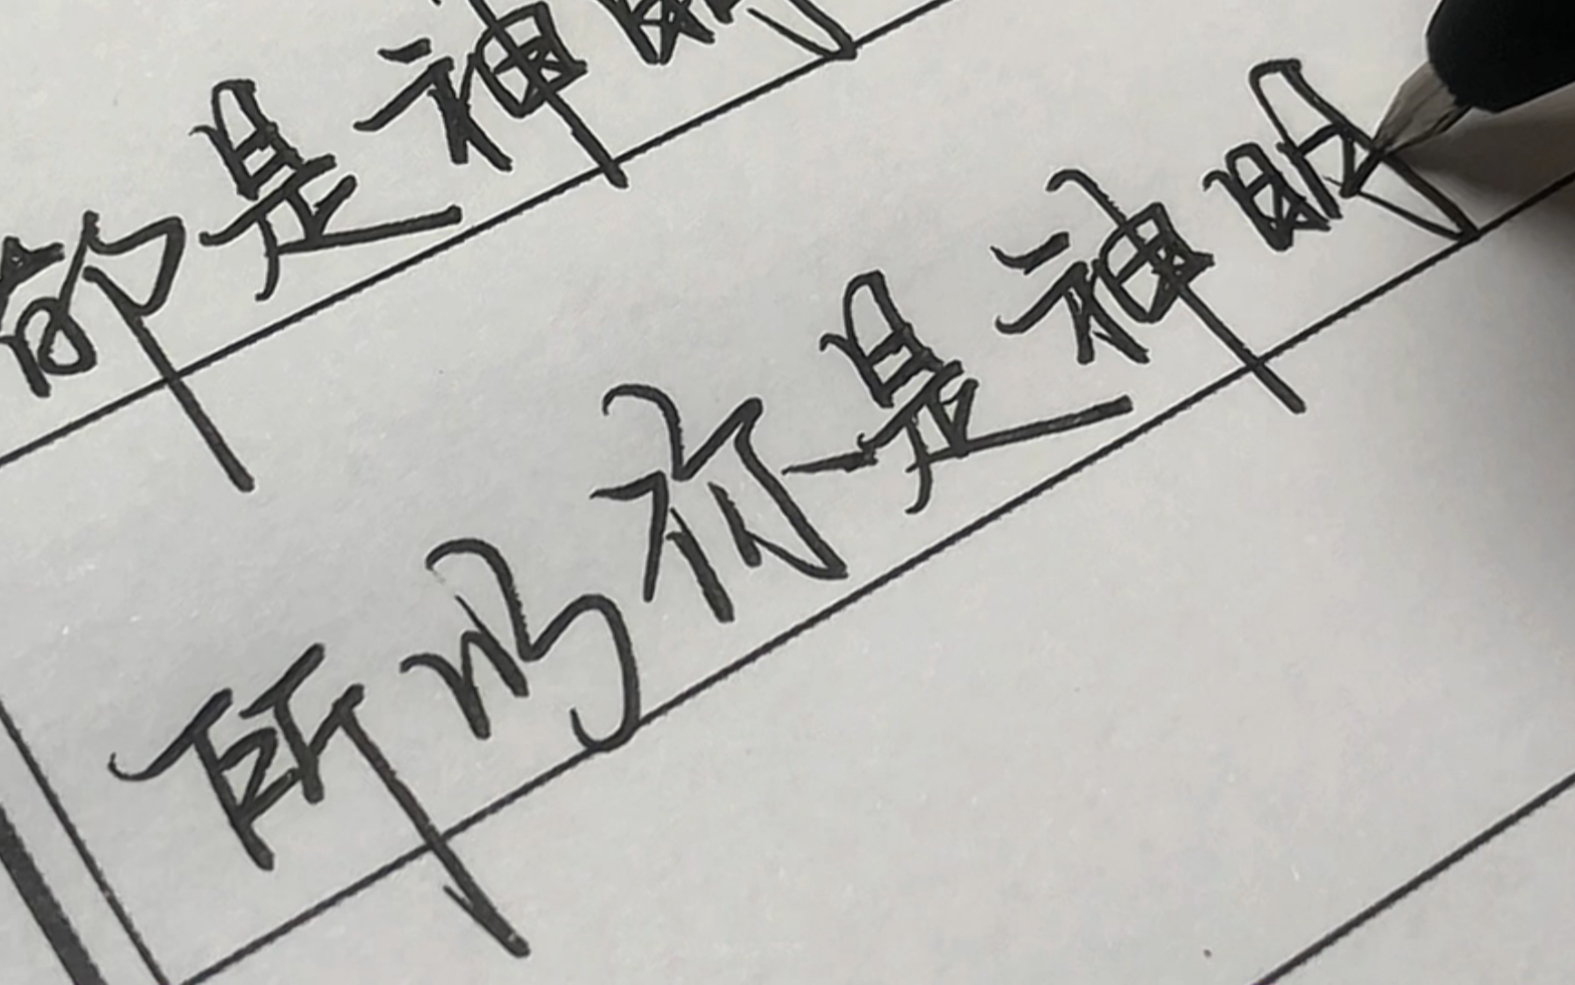 都是神明
所 是神明